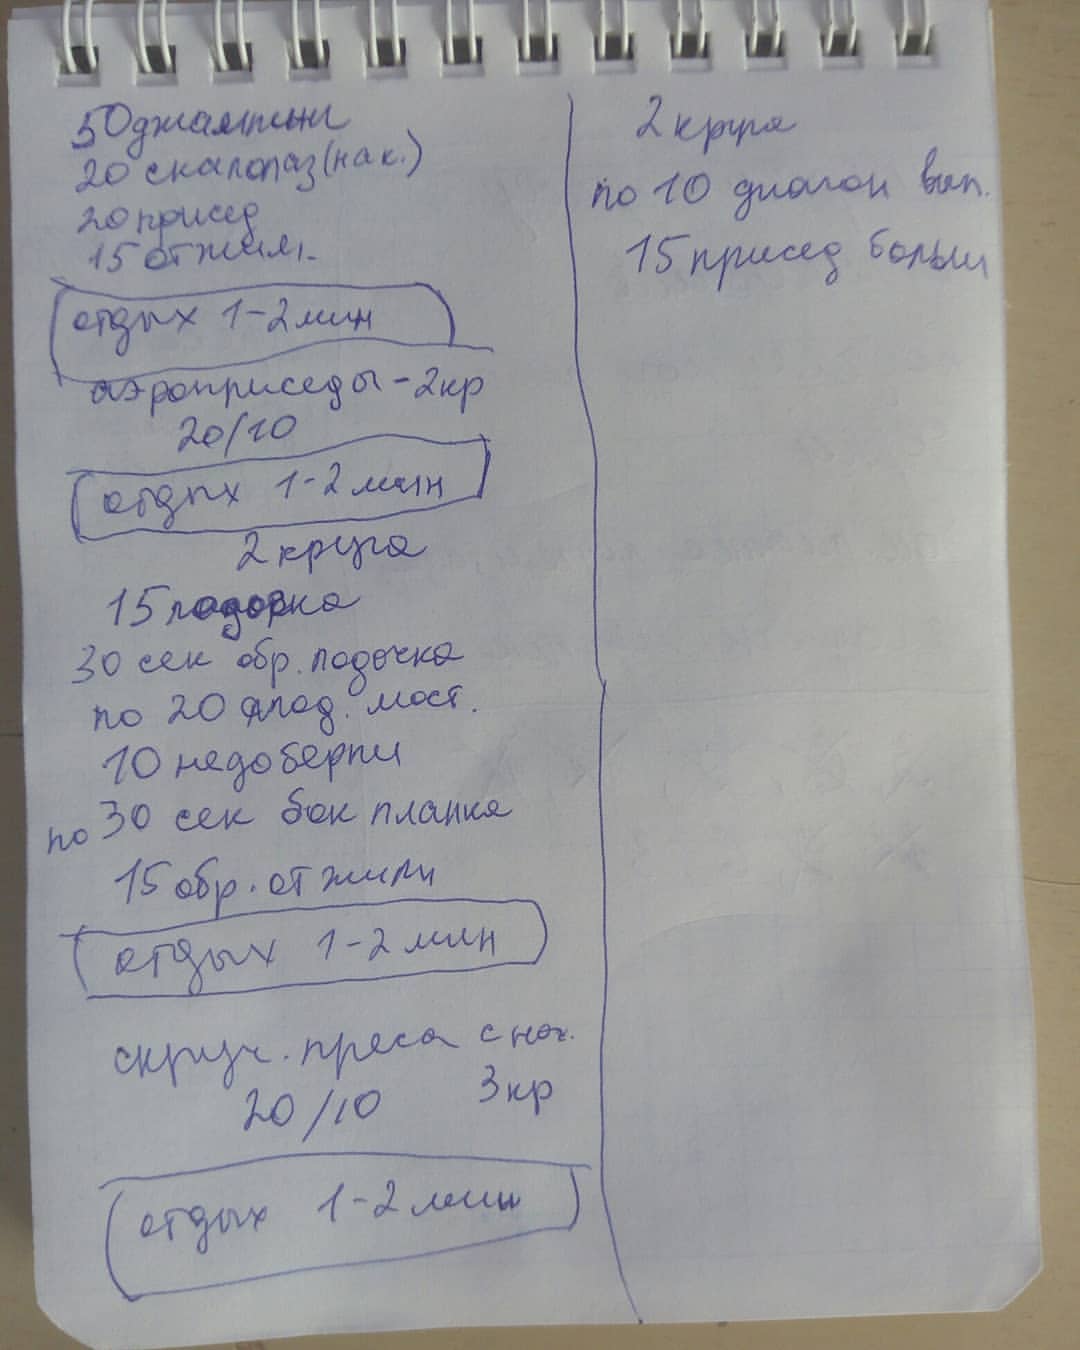 50 джампинг
20 скалолаз (нак.)
20 присед
15 отжим.
отдых 1-2 мин
аэроприседы - 2кр
20/10
отдых 1-2 мин
2 круга
15 лодочка
30 сек обр. лодочка
по 20 ягод. мост.
10 недоберпи
по 30 сек бок планка
15 обр. отжим
отдых 1-2 мин
скруч. преса с ног.
20/10 3кр
отдых 1-2 мин
2 круга
по 10 диагон вып.
15 присед больш